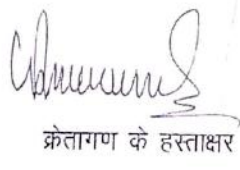 क्रेतागण के हस्ताक्षर